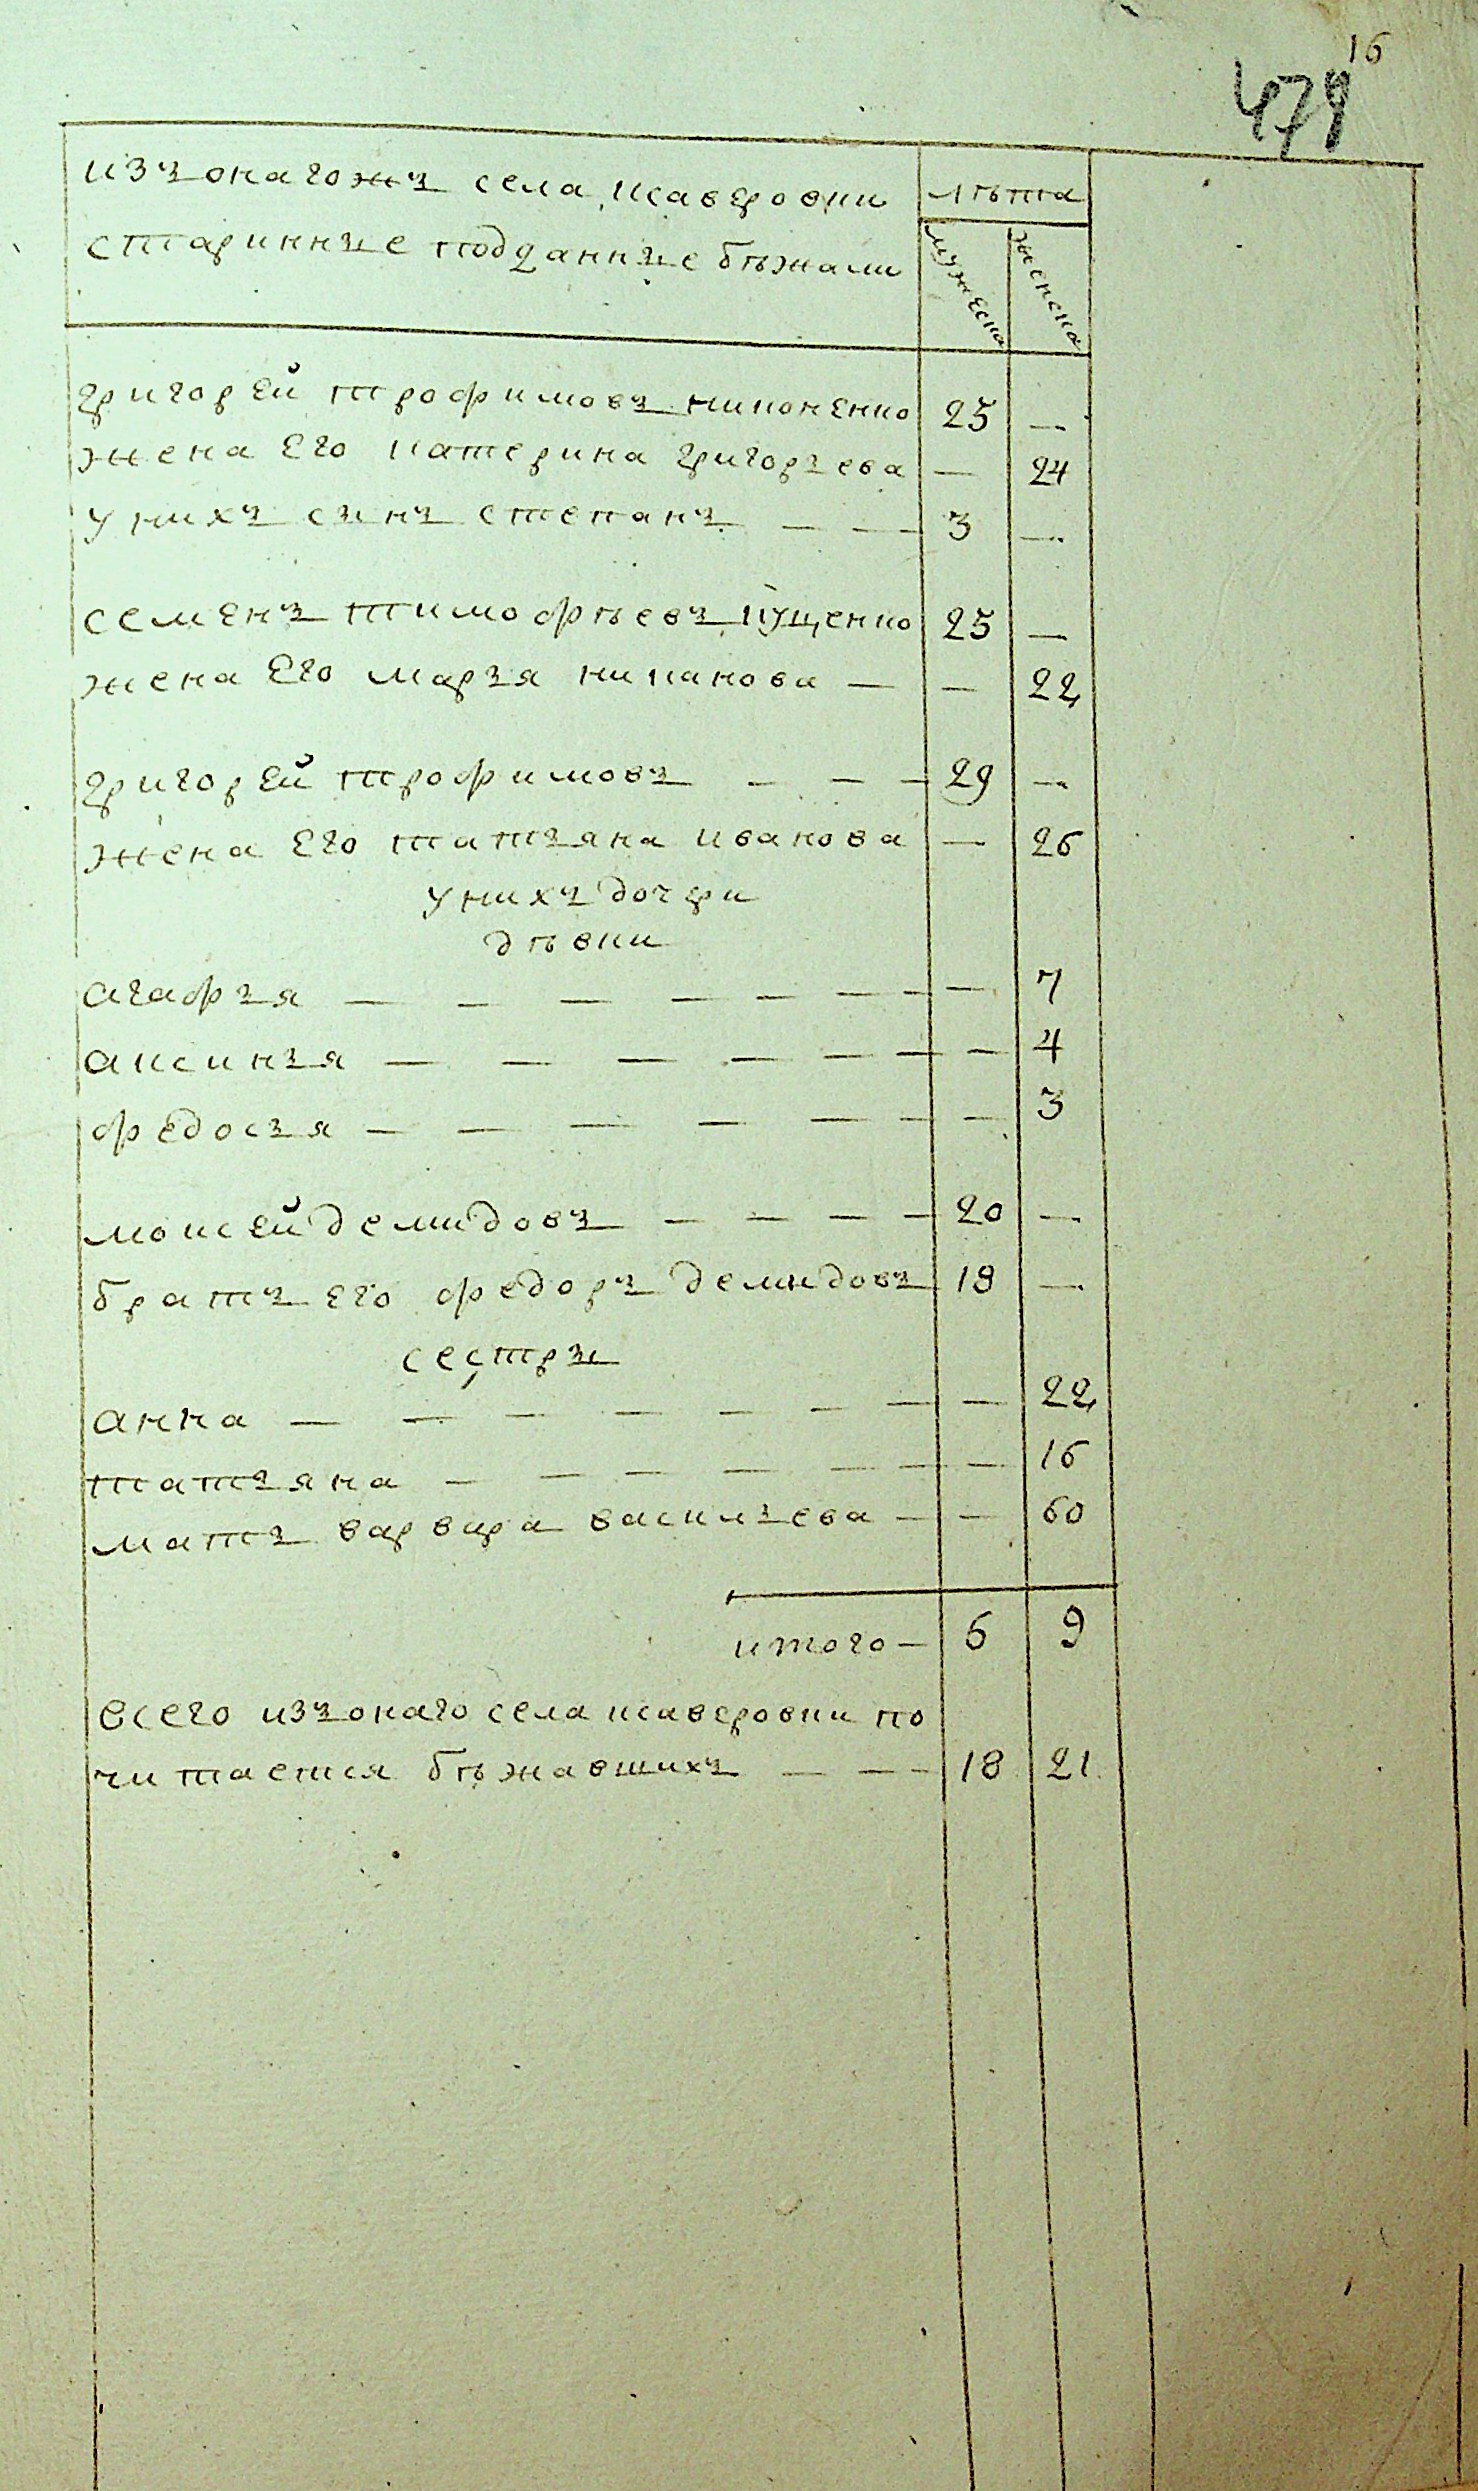 16
479
изъ онагожъ села, Каверовки
старинные подданные бѣжали
лѣта
мужеска
женска
григорей трофимовъ никоненко 25 —
жена его катерина григорьева — 24
у нихъ сынъ степанъ — — 3 —
семенъ тимофѣевъ куценко 25 —
жена его марья никанова — — 22
григорей трофимовъ — — — 29 —
жена его татьяна иванова — 26
у нихъ дочери
дѣвки
агафья — — — — — — — — 7
аксинья — — — — — — — 4
федосья — — — — — — 3
моисей демидовъ — — — — 20 —
братъ его федоръ демидовъ 18 —
сестры
анна — — — — — — — — 22
татьяна — — — — — — — 16
мать варвара васильева — — 60
итого — 6 9
всего изъ онаго села каверовки по
читается бѣжавшихъ — — — 18 21